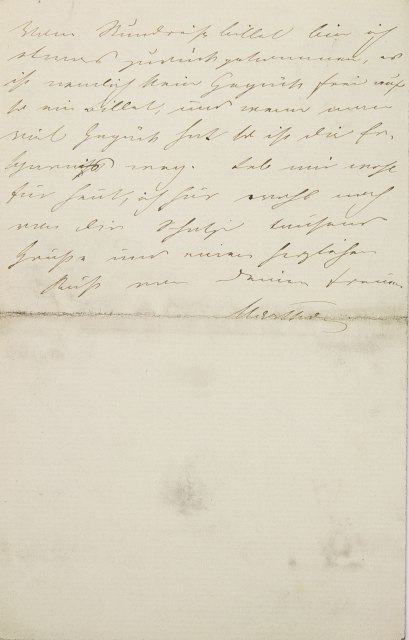 Vom Rundreisebillet bin ich
etwas zurückgekommen, es
ist nemlich kein Gepäck frei auf
so ein Billet, und wenn man
viel Gepäck hat so ist die Er-
sparniß weg. Leb mir wohl
für heut, ich hör wohl noch
von dir Schatz tausend
Grüße und einen herzlichen
Kuß von Deiner treuen
Martha